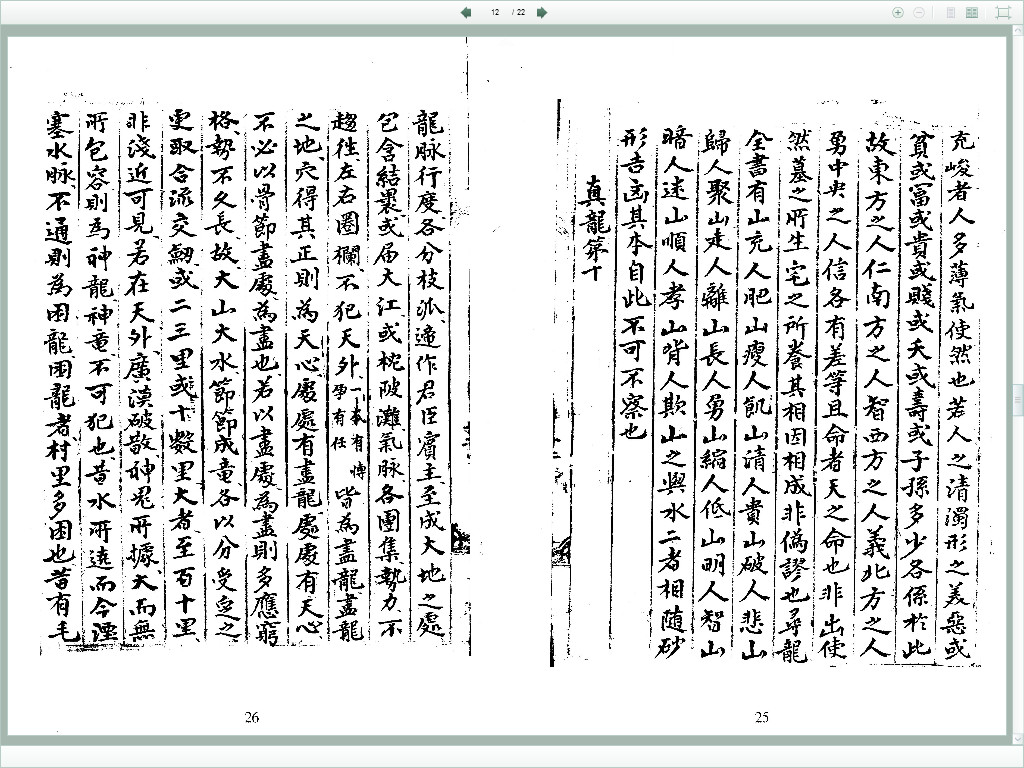 12 / 22
充峻者人多薄氣使然也若人之清濁形之美惡或
貧或富或貴或賤或夭或壽或子孫多少各係於此
故東方之人仁南方之人智西方之人義北方之人
勇中央之人信各有差等且命者天之命也非出使
然墓之所生宅之所養其相因相成非偽謬也尋龍
全書有山充人肥山瘦人飢山清人貴山破人悲山
歸人聚山走人離山長人勇山縮人低山明人智山
暗人迷山順人孝山背人欺山之與水二者相隨砂
形吉凶其本自此不可不察也
真龍第十
龍脉行度各分枝派遠作君臣賓主至成大地之處
包含結裹或届大江或枕陂灘氣脉各團集勢力不
趨徃左右圈襴不犯天外一本有孕有任皆為盡龍盡龍
之地穴得其正則為天心處處有盡龍處處有天心
不必以骨節盡處為盡也若以盡處為盡則多應窮
格勢不久長故大山大水節節成竜各以分受之
更取合流交劒或二三里或十數里大者至百十里
非淺近可見若在天外廣漠破散神鬼所據大而無
所包容則為神龍神竜不可犯也昔水所遶而今湮
塞水脉不通則為困龍困龍者村里多困也昔有毛
26
25